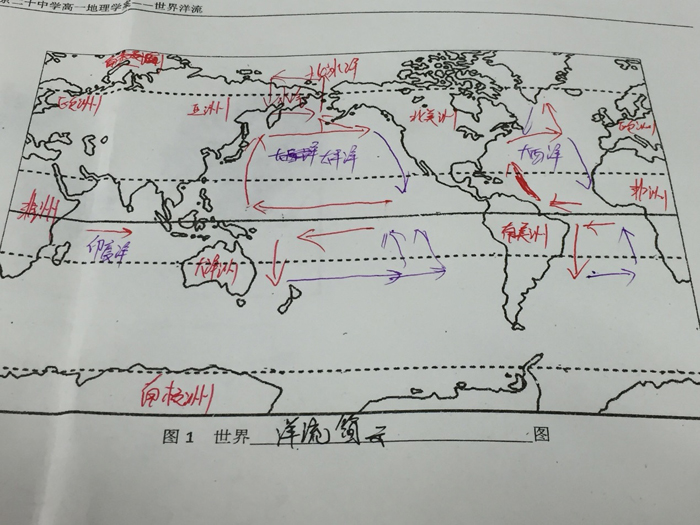 京二十中学高一地理学案——世界洋流
北冰洋
欧洲
亚洲
北美洲
欧洲
太平洋
大西洋
非洲
非洲
印度洋
大洋洲
南美洲
南极洲
图 1 世界 洋流 图